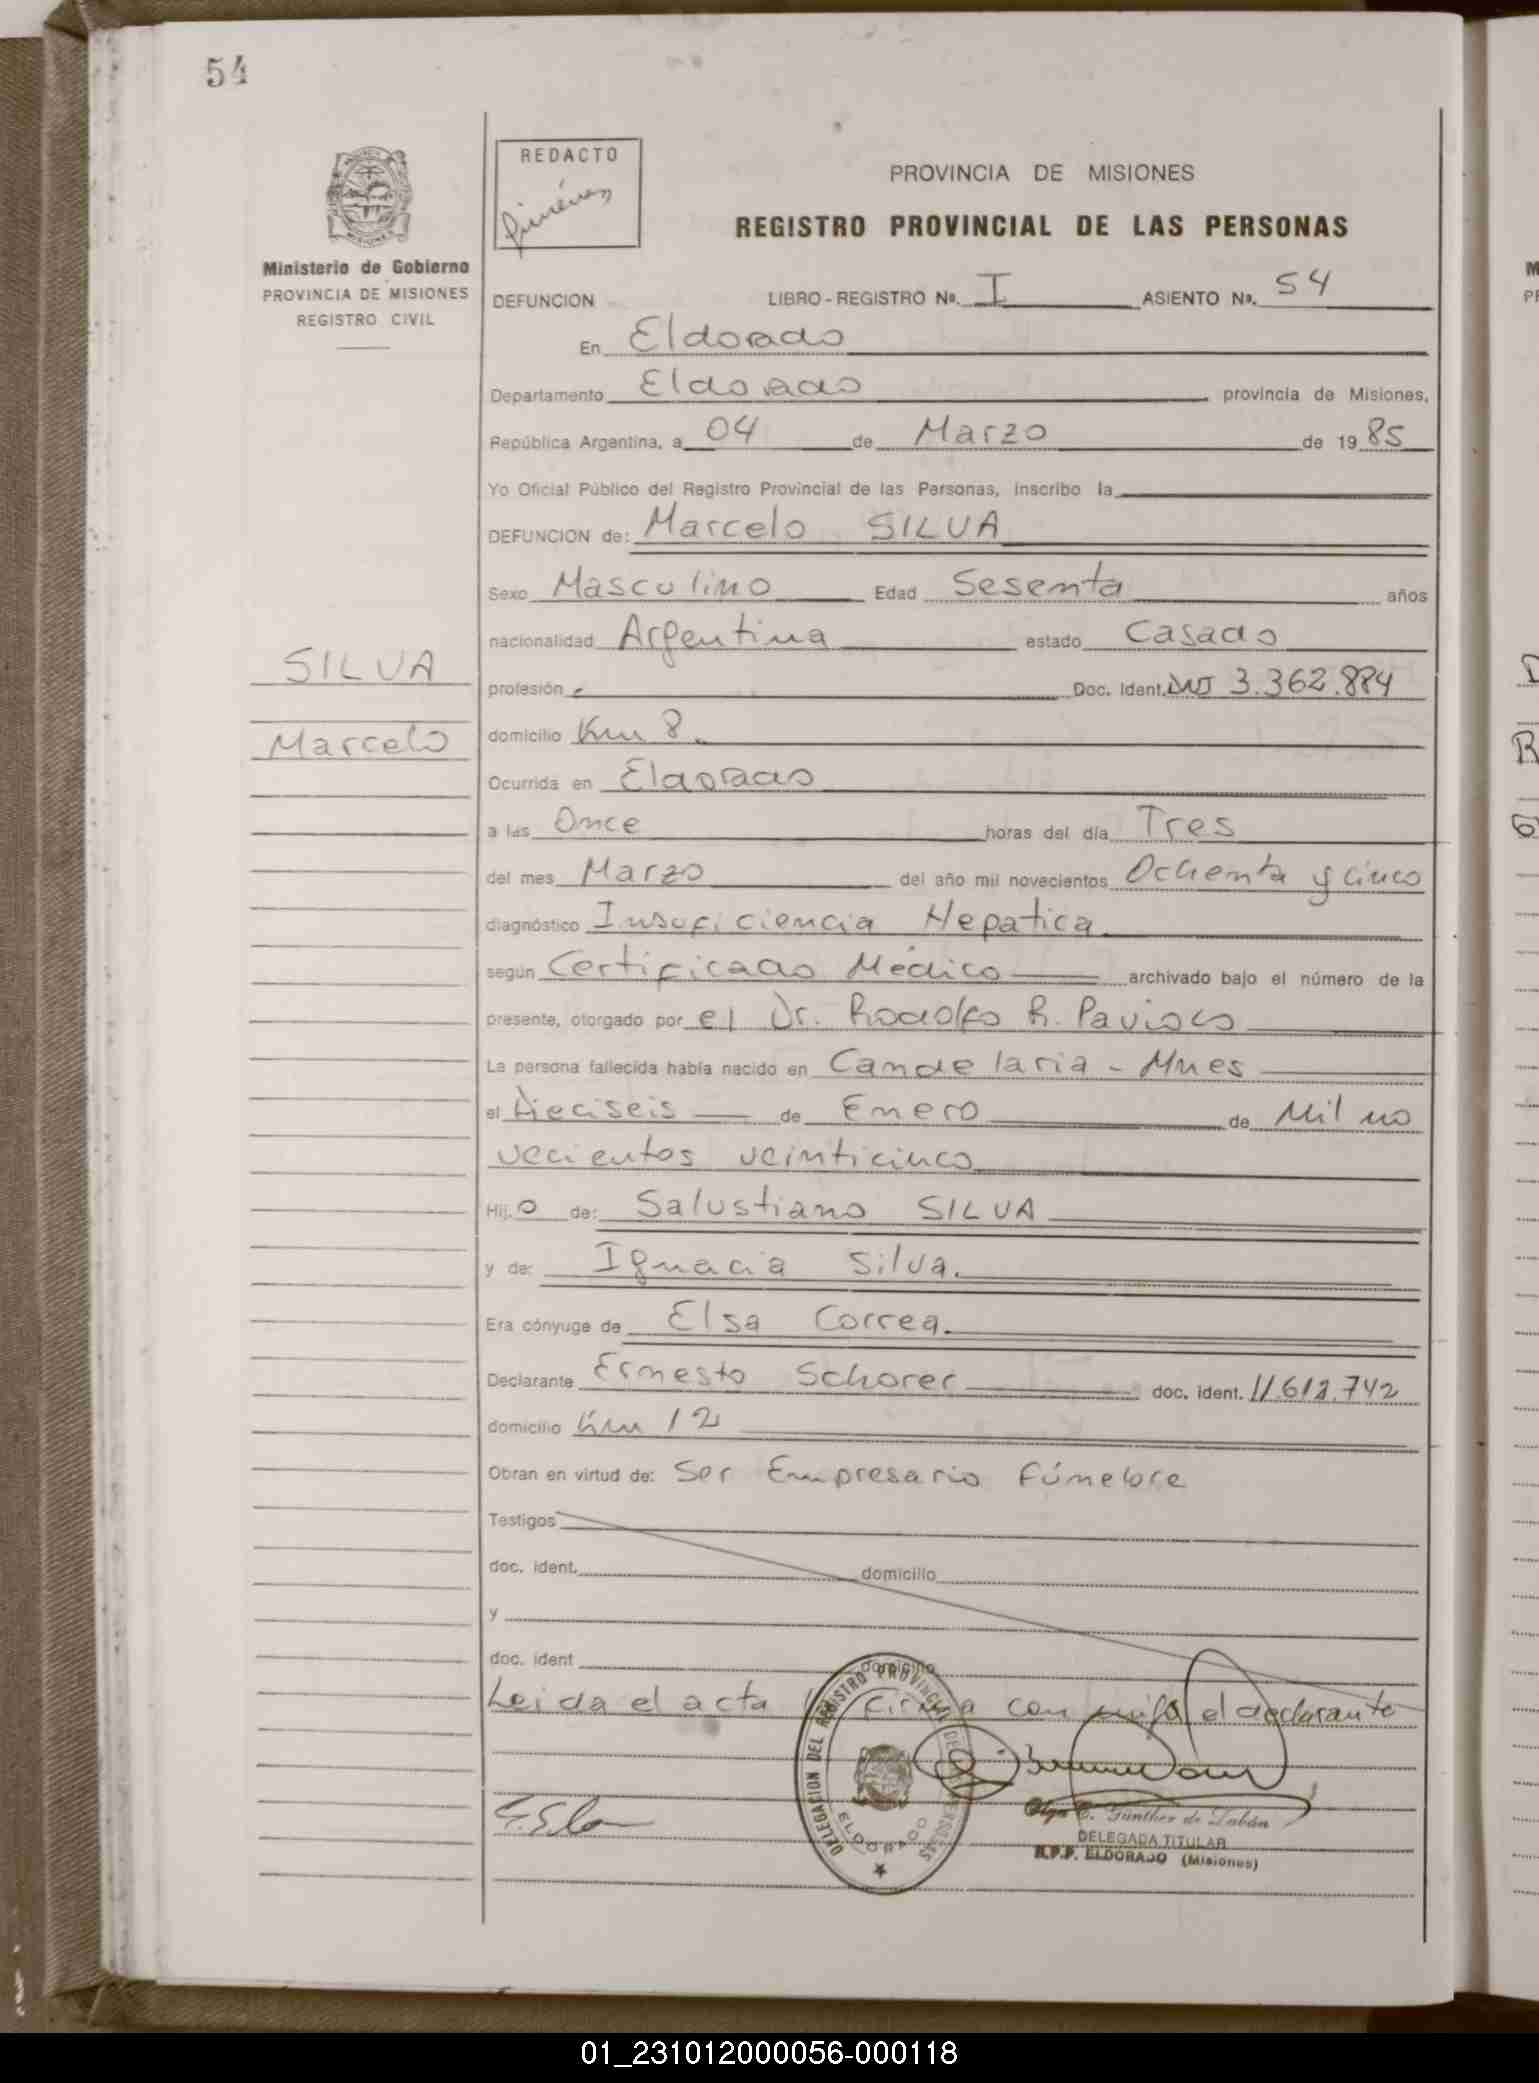 54
REDACTO
Giménez
PROVINCIA DE MISIONES
REGISTRO PROVINCIAL DE LAS PERSONAS
Ministerio de Gobierno
PROVINCIA DE MISIONES
REGISTRO CIVIL
DEFUNCION LIBRO-REGISTRO Nº. I ASIENTO Nº. 54
En Eldorado
Departamento Eldorado provincia de Misiones,
República Argentina, a 04 de Marzo de 1985
Yo Oficial Público del Registro Provincial de las Personas, inscribo la
DEFUNCION de: Marcelo SILVA
Sexo Masculino Edad Sesenta años
nacionalidad Argentina estado Casado
SILVA
Marcelo
profesión Doc. Ident. DNI 3.362.884
domicilio Km 8.
Ocurrida en Eldorado
a las Once horas del día Tres
del mes Marzo del año mil novecientos Ochenta y cinco
diagnóstico Insuficiencia Hepatica
según Certificado Médico archivado bajo el número de la
presente, otorgado por el Dr. Rodolfo R. Paviolo
La persona fallecida había nacido en Candelaria - Mnes
el Dieciseis de Enero de Mil no
vecientos veinticinco
Hijo de: Salustiano SILVA
y de: Ignacia Silva.
Era cónyuge de Elsa Correa.
Declarante Ernesto Schorer doc. ident. 11.612.742
domicilio Km 12
Obran en virtud de: Ser Empresario Fúnebre
Testigos
doc. ident. domicilio
y
doc. ident domicilio
Leida el acta firma con migo el declarante
DELEGACION DEL REGISTRO PROVINCIAL DE LAS PERSONAS
ELDORADO
Olga C. Günther de Zabán
DELEGADA TITULAR
R.P.P. ELDORADO (Misiones)
01_231012000056-000118